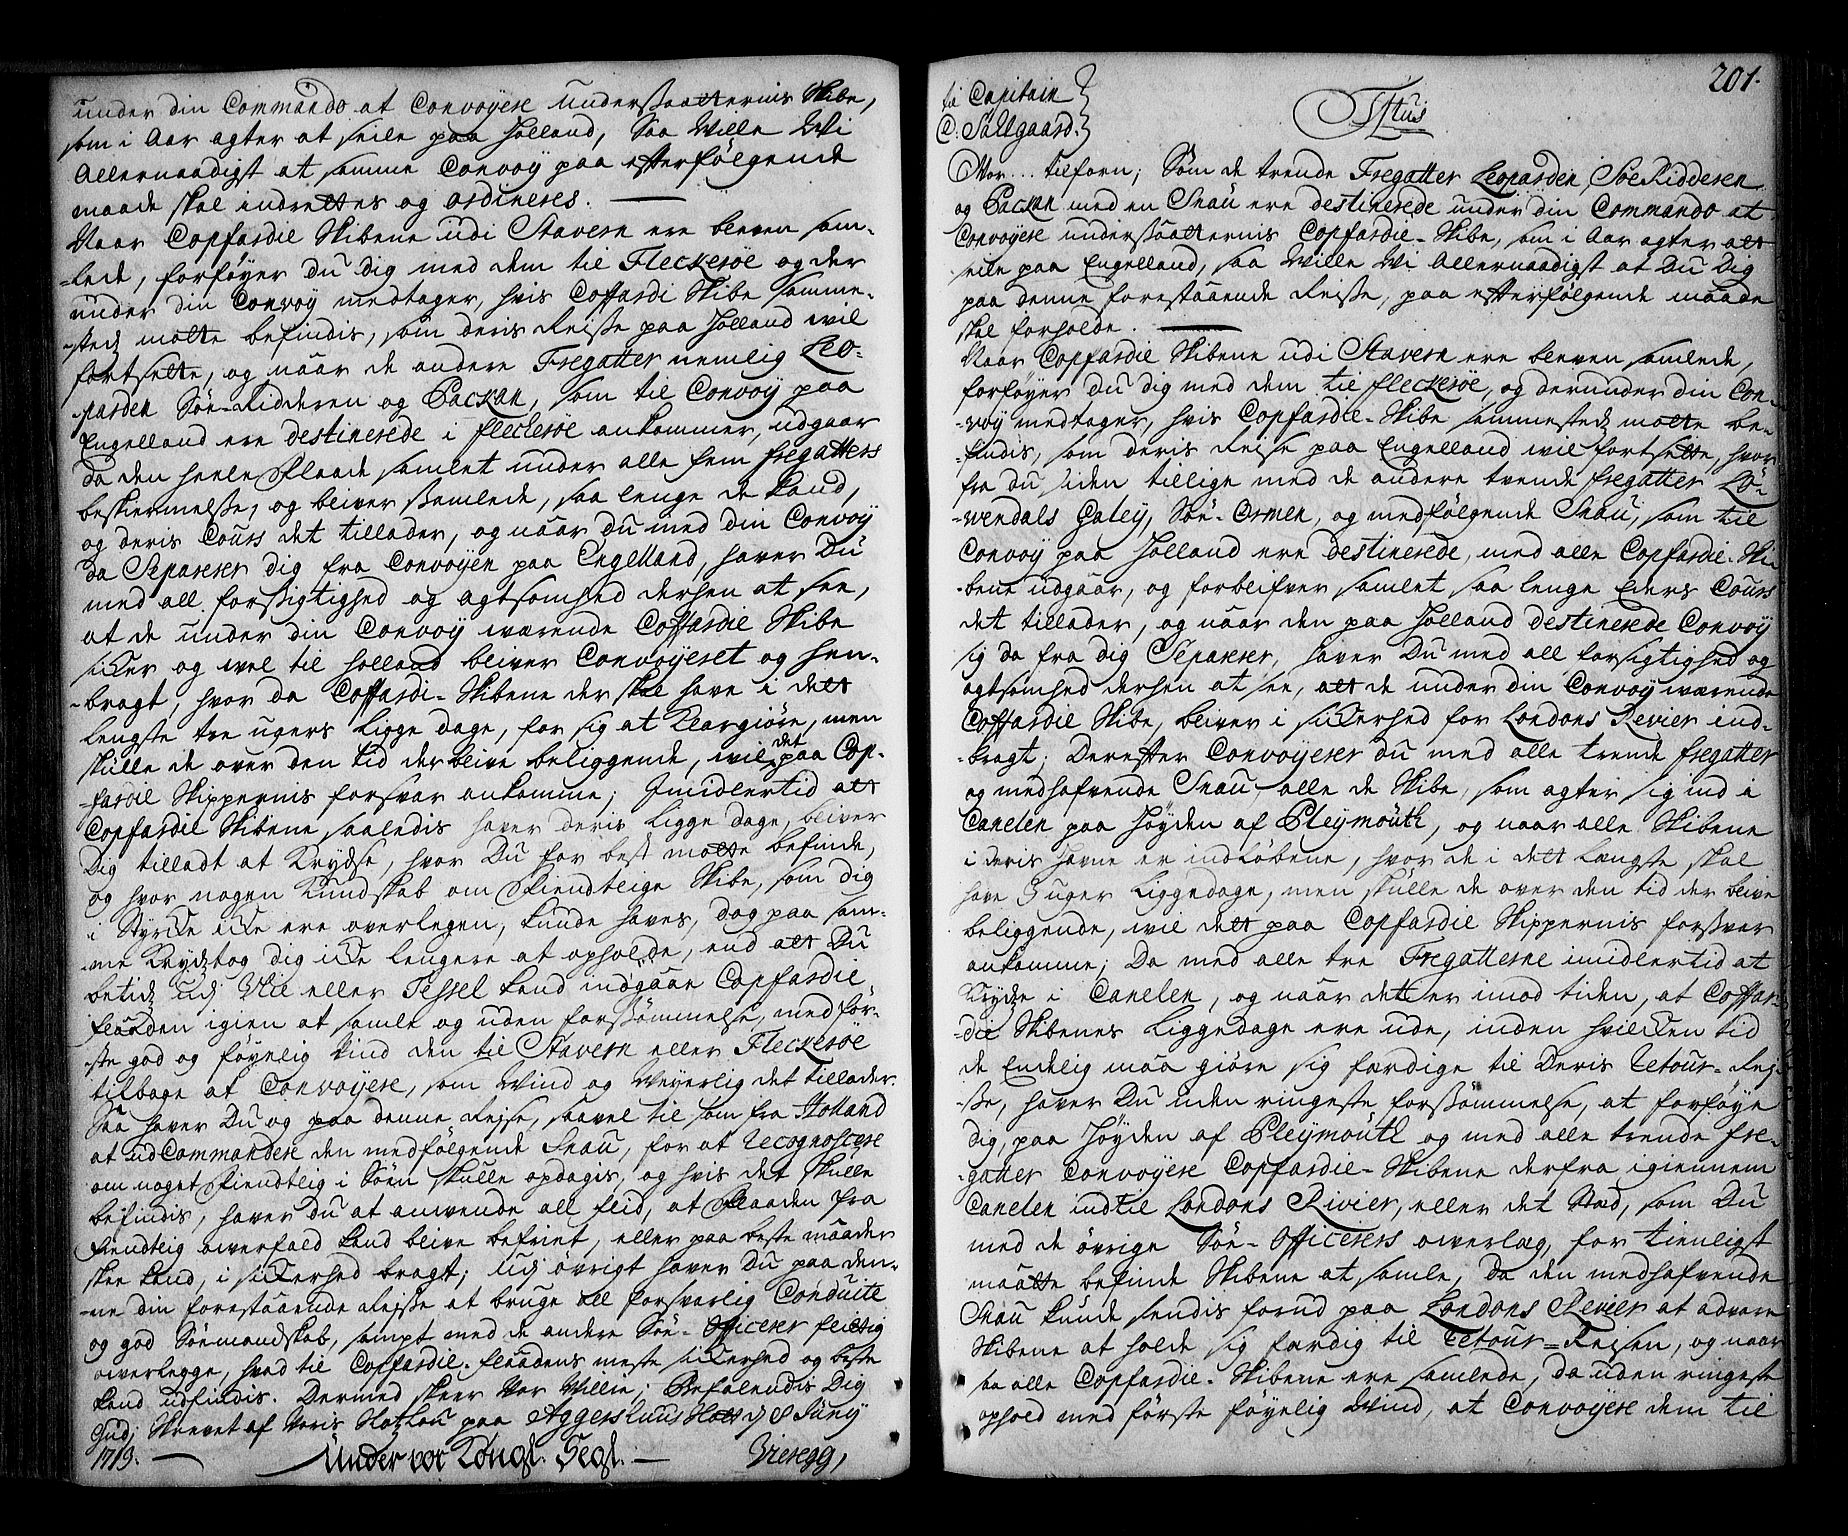 under din Commando at Convoyere undersaatternis Skibe,
som i Aar agter at seile paa Holland, Saa Wille Wi
Allernaadigst at samme Convoy paa efterfølgende
maade skal indrettes og ordineres.
Naar Copfardie Skibene udi Stavern ere bleven sam-
-lede, forføyer Du dig med dem til Fleckerøe og der
under din Convoy medtager, hvis Coffardi Skibe samme-
-stedz motte befindis, som deris Reise paa Holland vil
fortsette, og naar de andere Fregatter nemlig Leo-
-parden Søe-Ridderen og Packan, som til Convoy paa
Engelland ere destinerede i fleckerøe ankommer, udgaar
da den heele Flaade samlet under alle fem fregatters
beskiermelse, og bliver ssamlede, saa lenge de kand,
og deris Cours det tillader, og naar du med din Convoy
da Separerer dig fra Convoyen paa Engelland, haver Du
med all forssigtighed og agtsomhed derhen at see,
at de under din Convoy wærende Coffardie Skibe
sicker og wel til Holland bliver Convoyeret og hen-
-bragt, hvor da Coffardi-Skibene der skal have i dett
lengste tre ugers Ligge dage, for sig at Klargiøre, men
skulle de over den tid der blive beliggende, wil det paa Cop-
-fardie Skippernis forsvar ankomme; Imidlertid att
Copfardie Skibene saaledis haver deris Ligge dage, bliver
Dig tilladt at Krydse, hvor Du for best motte befinde,
og hvor nogen Kundskab om Fiendtlige Skibe, som dig
i Styrcke icke ere overlegen, kunde haves, dog paa sam-
-me Krydztog dig icke lengere at opholde, end att Du
betids udj Vlie eller Tessel kand indgaae Copfardie
flaaden igien at samle og uden forssømmelse, med før-
-ste god og føyelig wind den til Stavern eller Fleckerøe
tilbage at Convoyere, som Wind og Weyerlig det tillader.
Saa haver Du og paa denne Rejse, saavel til som fra Holland
at ud Commandere den medfølgende Snau, for at Recognoscere
om noget Fiendtlig i Søen skulle opdagis, og hvis det skulle
befindis, haver du at anvende all flid, at Flaaden fra
fiendtlig overfald kand blive befriet, eller paa beste maader
skee kand, i sickerhed bragt; Udj øvrigt haver Du paa den-
-ne din forestaaende Rejse at bruge all forsvarlig Conduite
og god Søemandskab, sampt med de andere Søe-Officerer flittig
overlegge, hvad til Copfardie-flaadens meste sickerhed og beste
kand udfindis. Dermed skeer Vor Willie; Befalendis Dig
Gud; Skrevet af Voris Slotzlou paa Aggershuus Slott d: 8 Juny
1719.
Under vor Kongl. Segl.
Vieregg,
201.
til Capitain
C: Sallgaard.
Iftus
Wor... tilforn; Som de trende Fregatter Leoparden, Søe Ridderen
og Packan med en Snau ere destinerede under din Commando at
Convoyere undersaatternis Copfardie-Skibe, som i Aar agter att
seile paa Engelland, saa Wille Wi Allernaadigst at Du Dig
paa denne forestaaende Reisse, paa efterfølgende maade
skal forholde.
Naar Copfardie Skibene udi Stavern ere bleven samlede,
forføyer Du dig med dem til fleckerøe, og derunder din Con-
-voy medtager, hvis Copfardie-Skibe sammestedz motte be-
-findis, som deris Rejse paa Engelland wil fortsette, hvor
fra du siden tillige med de andere tvende fregatter Lö-
-vendals Galey, Søe-Ormen, og medfølgende Snau, som til
Convoy paa Holland ere destinerede, med alle Copfardie-Ski-
-bene udgaar, og forblifver samlet saa lenge Eders Cours
det tillader, og naar den paa Holland destinerede Convoy
sig da fra dig Séparerer, haver Du med all forsigtighed og
agtsomhed derhen at see, att de under din Convoy wærende
Coffardie Skibe, bliver i sickerhed for Londons Revier ind-
-bragt; Derefter Convoyerer du med alle trende fregatter
og medhafvende Snau, alle de Skibe, som agter sig ind i
Canelen paa Høyden af Pleymouth, og naar alle Skibene
i deris Havne er indløbene, hvor de i dett Længste skal
have 3 uger Liggedage, men skulle de over den tid der blive
beliggende, wil dett paa Copfardie Skippernis forssvar
ankomme; Da med alle tre Fregatterne imidlertid at
Krydze i Canelen, og naar det er imod tiden, at Coffar-
-die Skibenes Liggedage ere ude, inden hvilcken tid
de Endelig maa giøre sig færdige til Deris Retour-Rej-
-sse, haver Du uden ringeste forssømmelse, at forføye
dig, paa Høyden af Pleymouth og med alle trende fre-
-gatter Convoyere Copfardie-Skibene derfra igiennem
Canelen indtil Londons Rivier, eller det Stæd, som Du
med de øvrige Søe-Officerers overlæg, for tienligst
maatte befinde Skibene at samle, Da den medhafvende
Snau kunde sendis forud paa Londons Revier at advare
Skibene at holde sig færdig til Retour-Reisen, og naar
da alle Copfardie-Skibene ere samlede, da uden ringeste
ophold med første føyelig Wind, at Convoyere dem til